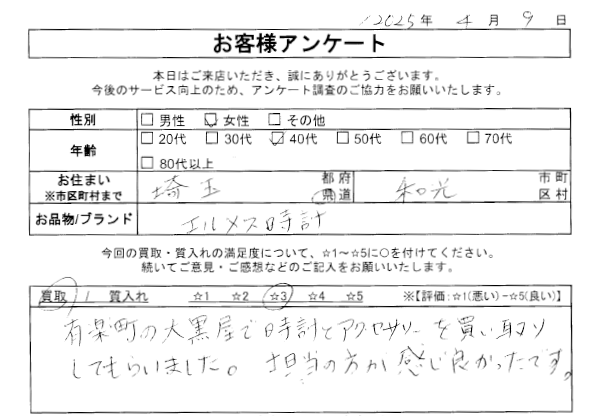 2025年 4月 9日
お客様アンケート
本日はご来店いただき、誠にありがとうございます。
今後のサービス向上のため、アンケート調査のご協力をお願いいたします。
性別 □男性 ☑女性 □その他
年齢 □20代 □30代 ☑40代 □50代 □60代 □70代
□80代以上
お住まい ※市区町村まで 埼玉 都府県道 和光 市町区村
お品物/ブランド エルメス時計
今回の買取・質入れの満足度について、☆1~☆5に○を付けてください。
続いてご意見・ご感想などのご記入をお願いいたします。
買取 / 質入れ ☆1 ☆2 ☆3 ☆4 ☆5 ※【評価:☆1(悪い)-☆5(良い)】
有楽町の大黒屋で時計とアクセサリーを買い取り
してもらいました。担当の方が感じ良かったです。